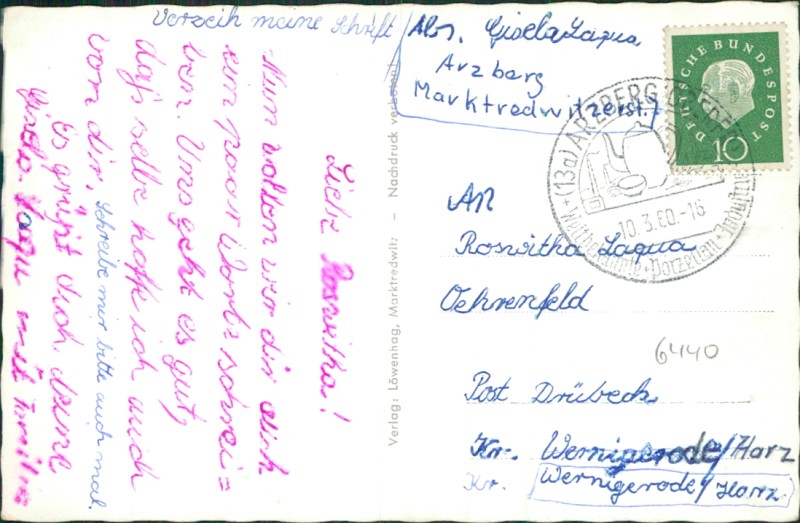 Verzeih meine Schrift
Liebe Roswitha!
Nun wollen wir dir auch
ein paar Worte schrei=
ben. Uns geht es gut,
daß selbe hoffe ich auch
von dir. Schreibe mir bitte auch mal.
Es grüßt dich deine
Gisela Laqua mit Familie
Abs. Gisela Laqua
Arzberg
Marktredwitzerst. 7
DEUTSCHE BUNDESPOST
10
(13a) ARZBERG (OBERFR)
10.3.60-16
Weltbekannte Porzellan-Erzeugung
An
Roswitha Laqua
Oehrenfeld
6440
Post Drübeck
Kr. Wernigerode/Harz
Kr. Wernigerode/Harz
Verlag: Löwenhag, Marktredwitz – Nachdruck verboten